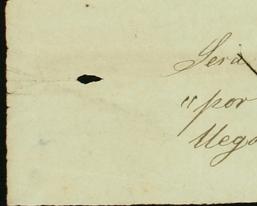 Será
"por
llega